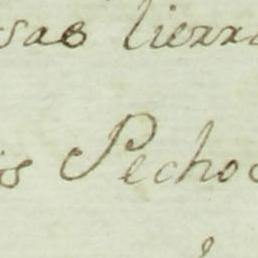 sas tierra
is Pecho